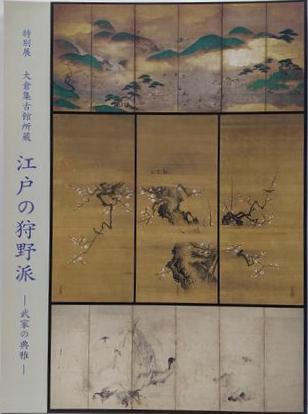 特別展　大倉集古館所蔵
江戸の狩野派
―武家の典雅―